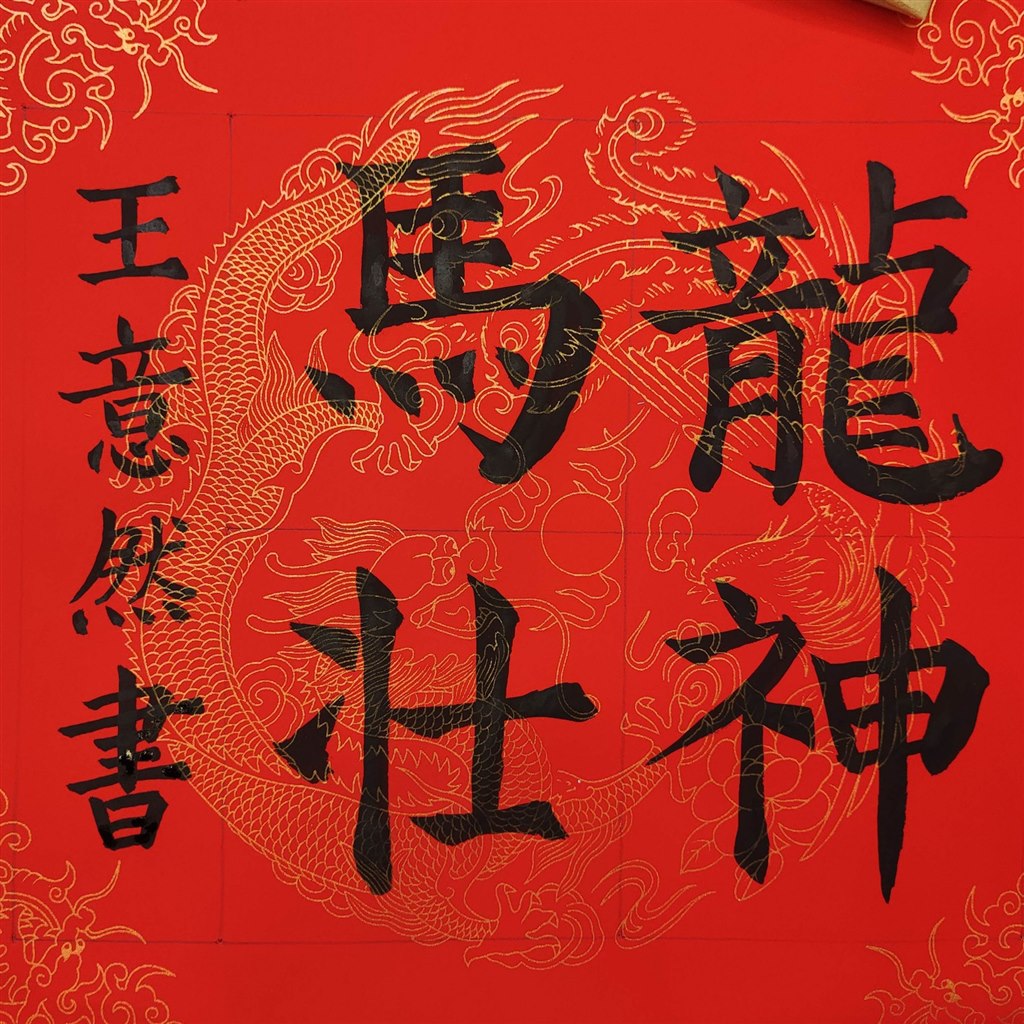 龍神
馬壯
王意然書